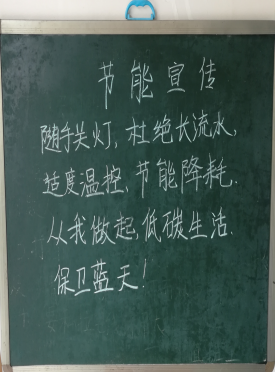 节能宣传
随手关灯,杜绝长流水,
适度温控,节能降耗.
从我做起,低碳生活.
保卫蓝天!